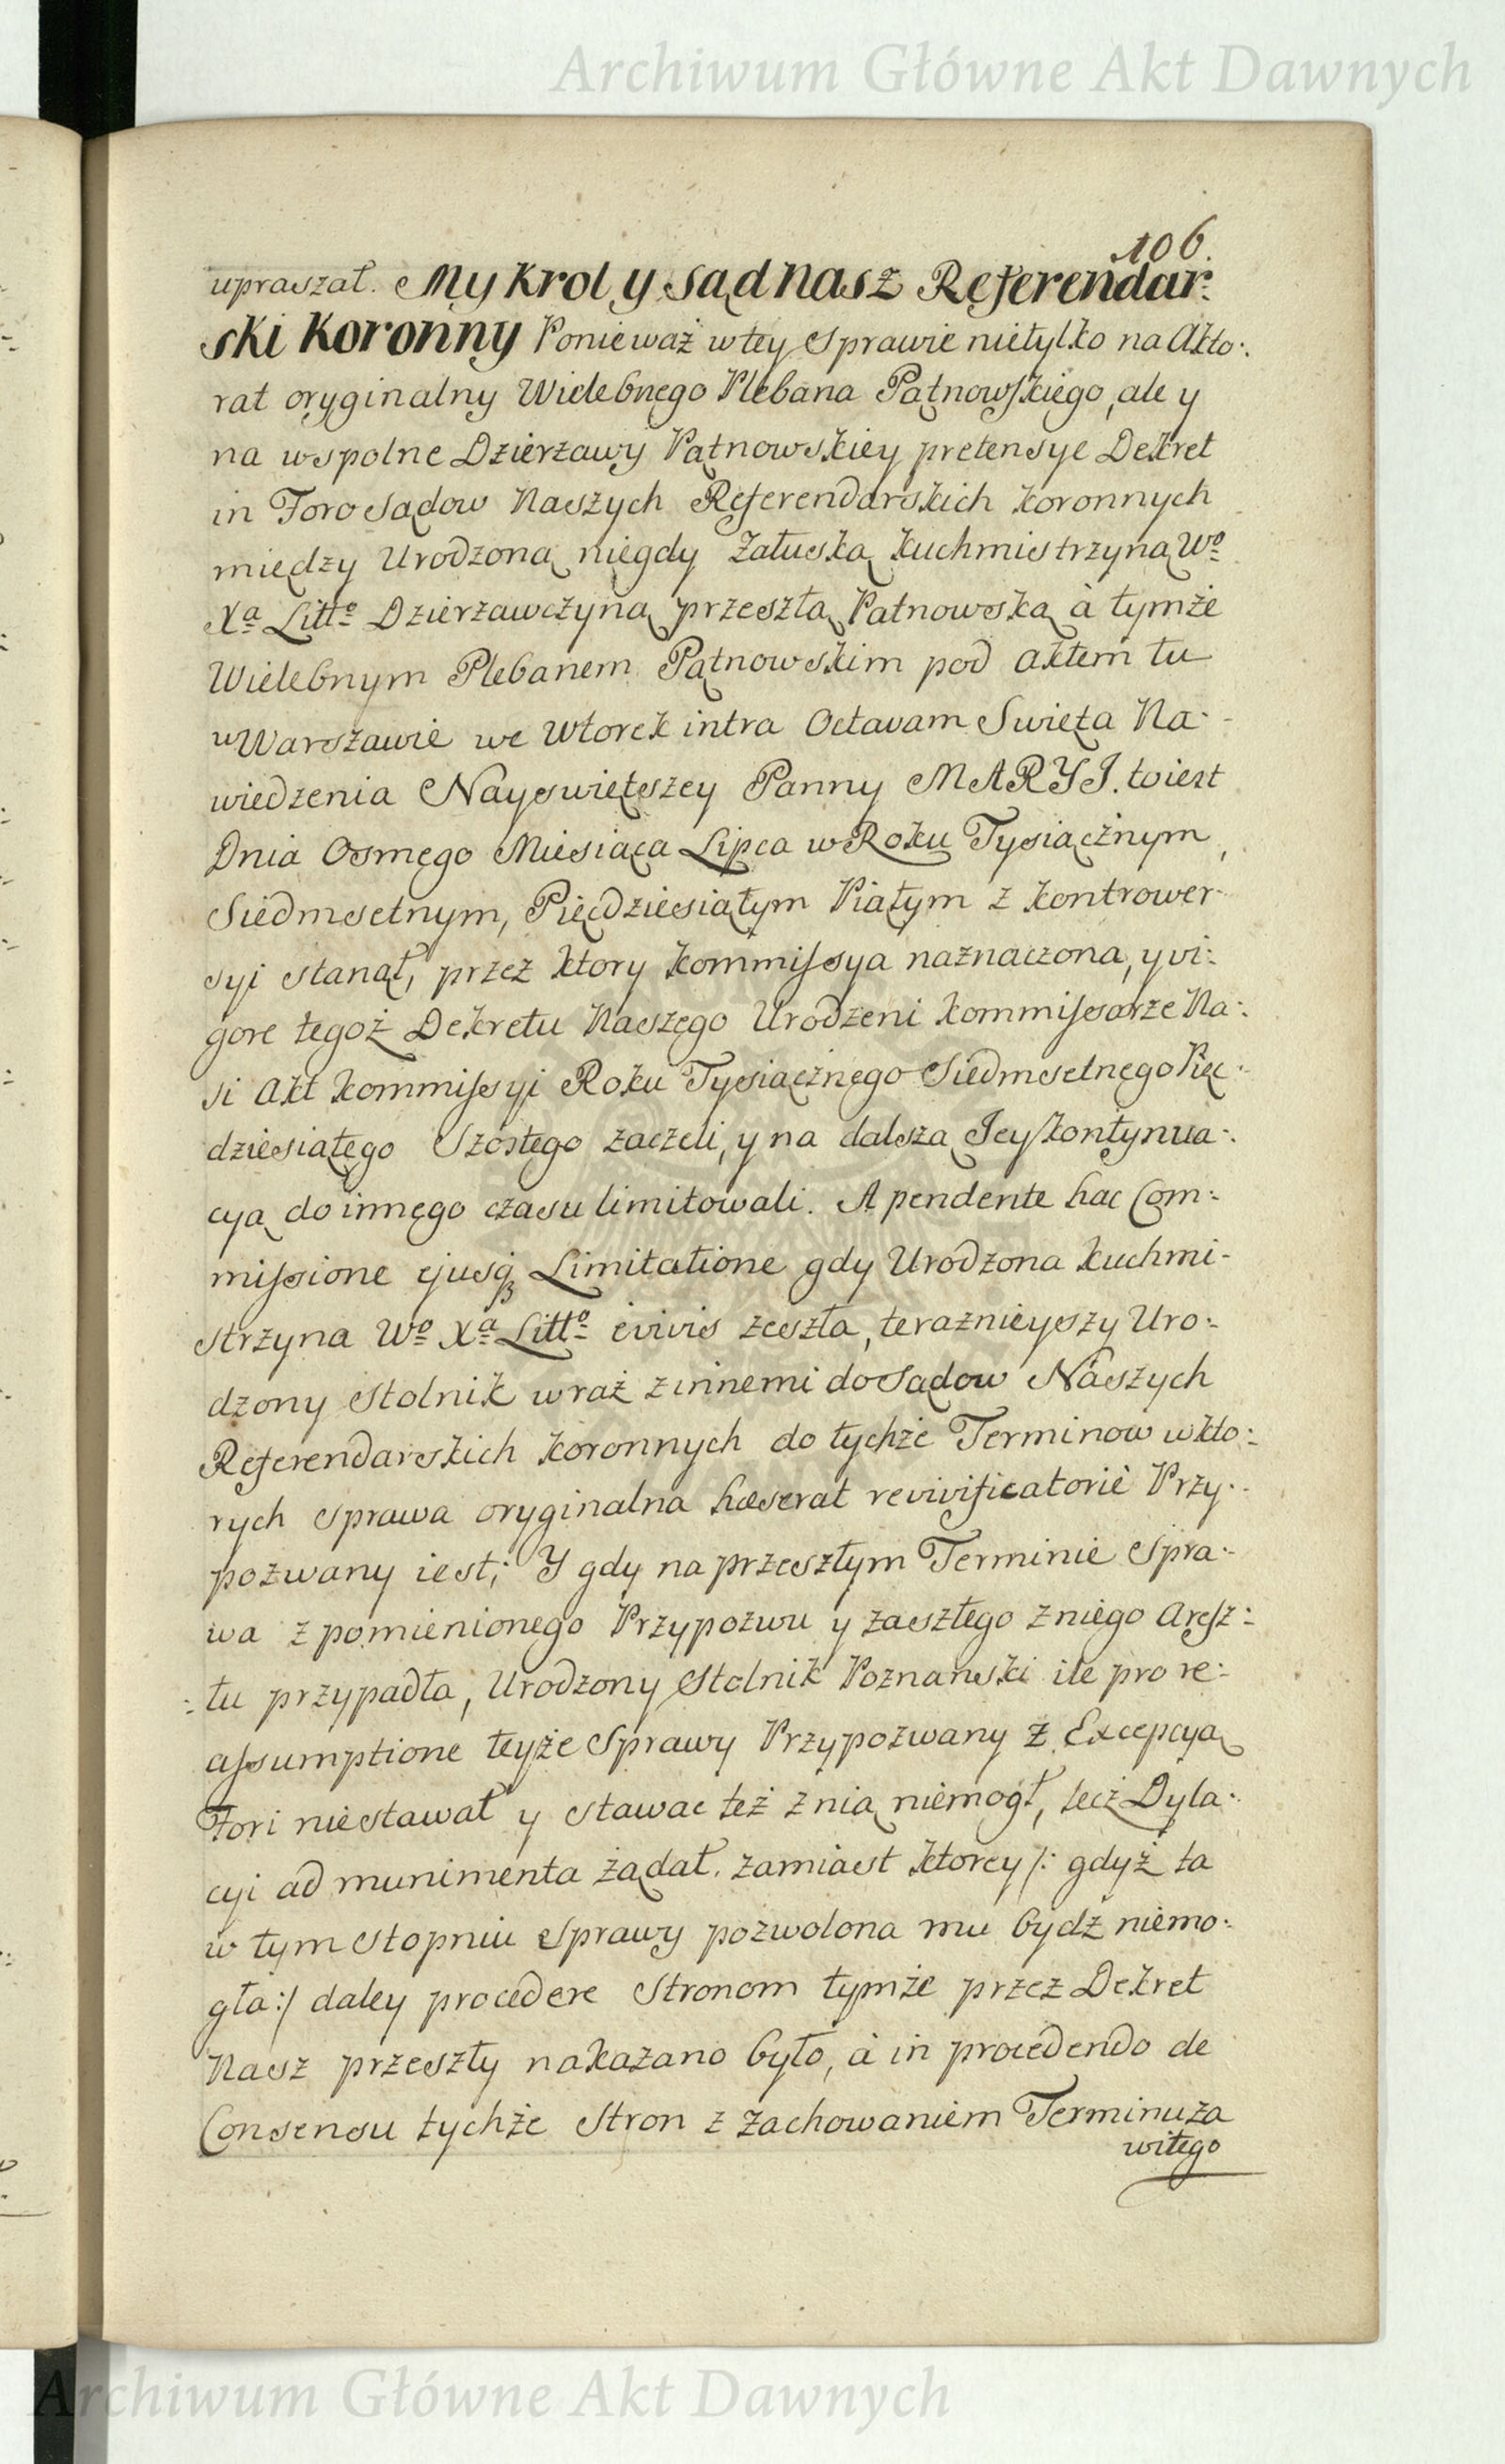 Archiwum Główne Akt Dawnych
106.
upraszał. My Krol y Sąd Nasz Referendar:
ski Koronny Ponieważ w tey Sprawie nietylko na Akto:
rat oryginalny Wielebnego Plebana Pątnowskiego, ale y
na wspolne Dzierzawy Pątnowskiey pretensye Dekret
in Foro Sądow Naszych Referendarskich Koronnych
między Urodzoną niegdy Załuską Kuchmistrzyną Wo
Xa Litto Dzierzawczyną przeszłą Patnowską à tymże
Wielebnym Plebanem Pątnowskim pod Aktem tu
w Warszawie we Wtorek intra Octavam Swięta Na:
wiedzenia Nayswiętszey Panny MARYI. to iest
Dnia Osmego Miesiąca Lipca w Roku Tysiącznym
Siedmsetnym, Pięćdziesiątym Piątym z Kontrower:
syi stanął, przez ktory Kommissya naznaczona, y vi:
gore tegoż Dekretu Naszego Urodzeni Kommissarze Na:
si Akt Kommissyi Roku Tysiącznego Siedmsetnego Pięć:
dziesiątego Szóstego zaczeli, y na dalszą Jey Kontynua:
cyą do innego czasu limitowali. A pendente hac Com:
missione ejusq Limitatione gdy Urodzona Kuchmi-
strzyna Wo Xa Litto èvivis zeszła, teraznieyszy Uro:
dzony Stolnik wraż z innemi do Sądow Naszych
Referendarskich Koronnych do tychże Terminow w kto:
rych Sprawa oryginalna hæserat revivificatoriè Przy:
pozwany iest; Y gdy na przeszłym Terminie Spra:
wa z pomienionego Przypozwu y zaszłego z niego Aresz:
:tu przypadła, Urodzony Stolnik Poznański ile pro re:
assumptione teyże Sprawy Przypozwany z Excepcyą
Fori niestawał y stawac też z nią niemogł, lecz Dyla:
cyi ad munimenta żądał. zamiast ktorey /: gdyż ta
w tym stopniu Sprawy pozwolona mu bydź niemo:
gła :/ daley procedere Stronom tymże przez Dekret
Nasz przeszły nakazano było, à in procedendo de
Consensu tychże Stron z zachowaniem Terminu za
witego
Archiwum Główne Akt Dawnych